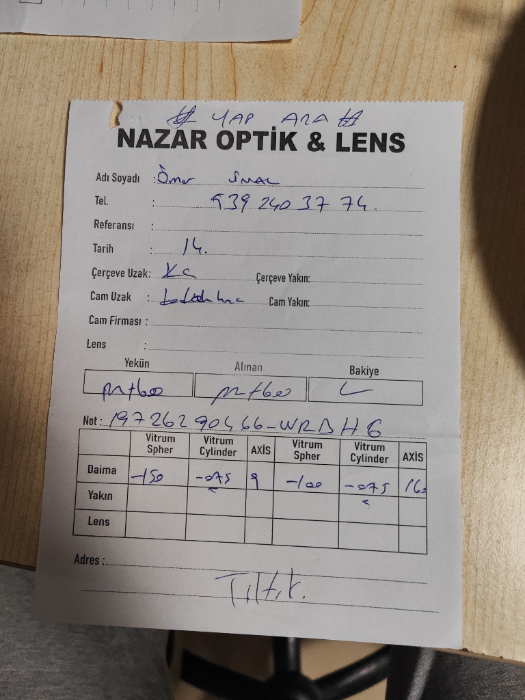 # YAP ARA #
NAZAR OPTİK & LENS
Adı Soyadı : Ömer
Tel. : 539 240 37 74
Referansı :
Tarih : 14.
Çerçeve Uzak: Çerçeve Yakın:
Cam Uzak : Cam Yakın:
Cam Firması :
Lens :
Yekün Alınan Bakiye
Not : 19726290466-WRBH6
Vitrum Spher Vitrum Cylinder AXİS Vitrum Spher Vitrum Cylinder AXİS
Daima -150 -075 9 -100 -075
Yakın
Lens
Adres :